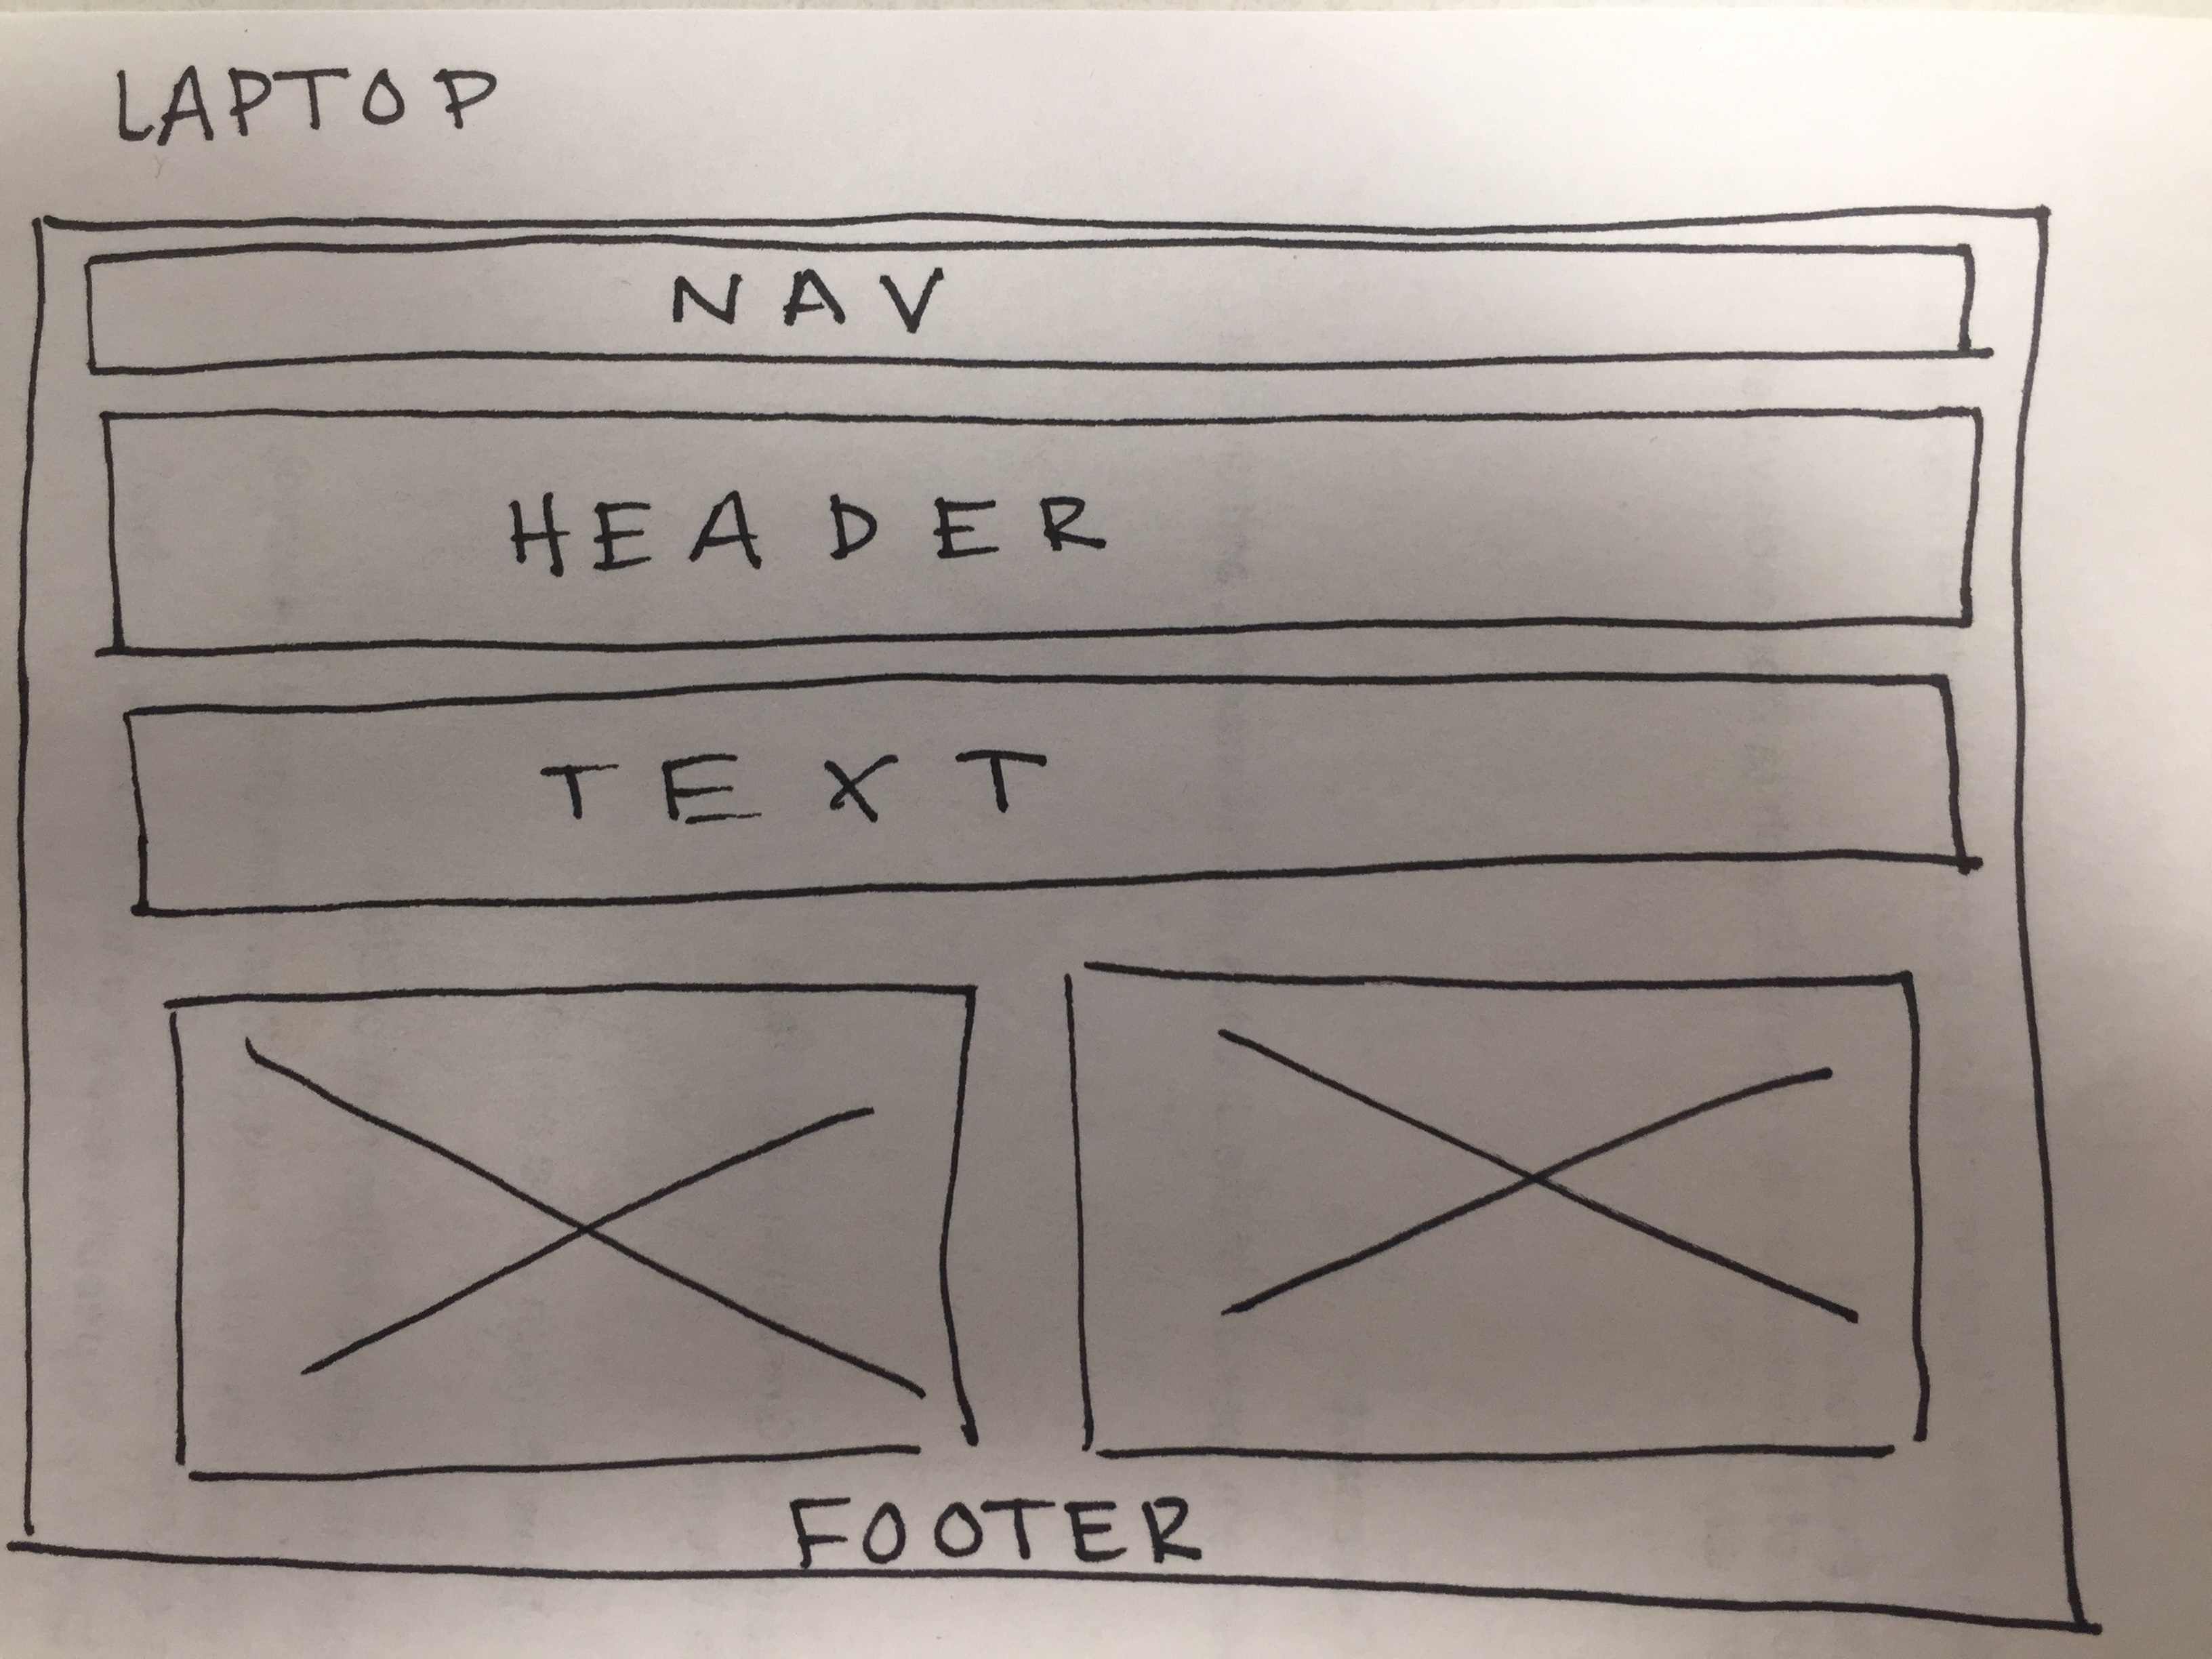 LAPTOP
NAV
HEADER
TEXT
FOOTER